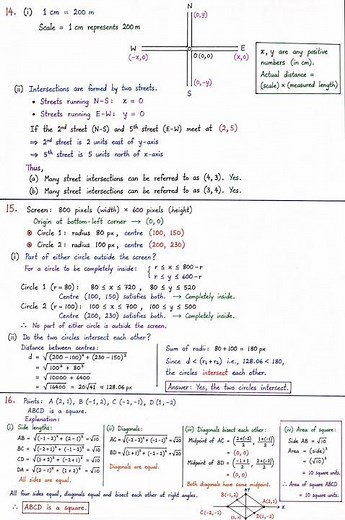 14. (i) 1 cm = 200 m
Scale = 1 cm represents 200 m
N
(0,y)
W
(-x,0)
O (0,0)
E
(x,0)
(0,-y)
S
x, y are any positive
numbers (in cm).
Actual distance =
(scale) × (measured length)
(ii) Intersections are formed by two streets.
• Streets running N-S: x = 0
• Streets running E-W: y = 0
If the 2nd street (N-S) and 5th street (E-W) meet at (2, 5)
⇒ 2nd street is 2 units east of y-axis
⇒ 5th street is 5 units north of x-axis
Thus,
(a) Many street intersections can be referred to as (4, 3). Yes.
(b) Many street intersections can be referred to as (3, 4). Yes.
15. Screen: 800 pixels (width) × 600 pixels (height)
Origin at bottom-left corner → (0, 0)
Circle 1: radius 80 px, centre (100, 150)
Circle 2: radius 100 px, centre (200, 230)
(i) Part of either circle outside the screen?
For a circle to be completely inside: { r ≤ x ≤ 800-r
r ≤ y ≤ 600-r
Circle 1 (r = 80): 80 ≤ x ≤ 720, 80 ≤ y ≤ 520
Centre (100, 150) satisfies both. → Completely inside.
Circle 2 (r = 100): 100 ≤ x ≤ 700, 100 ≤ y ≤ 500
Centre (200, 230) satisfies both. → Completely inside.
∴ No part of either circle is outside the screen.
(ii) Do the two circles intersect each other?
Distance between centres:
d = √(200-100)² + (230-150)²
= √100² + 80²
= √10000 + 6400
= √16400 = 20√41 ≈ 128.06 px
Sum of radii: 80 + 100 = 180 px
Since d < (r₁ + r₂) i.e., 128.06 < 180,
the circles intersect each other.
Answer: Yes, the two circles intersect.
16. Points: A (2, 1), B (-1, 2), C (-2, -1), D (1, -2)
ABCD is a square.
Explanation:
(i) Side lengths:
AB = √(-1-2)² + (2-1)² = √10
BC = √(-2+1)² + (-1-2)² = √10
CD = √(1+2)² + (-2+1)² = √10
DA = √(2-1)² + (1+2)² = √10
All sides are equal.
(ii) Diagonals:
AC = √(-2-2)² + (-1-1)² = √20
BD = √(1+1)² + (-2-2)² = √20
Diagonals are equal.
(iii) Diagonals bisect each other:
Midpoint of AC =
= (0, 0)
Midpoint of BD =
= (0, 0)
Both diagonals have same midpoint.
(iv) Area of square:
Side AB = √10
Area = (side)²
= (√10)²
= 10 square units.
∴ Area of square ABCD
= 10 square units.
All four sides equal, diagonals equal and bisect each other at right angles.
∴ ABCD is a square.
B(-1,2)
A(2,1)
X
C(-2,-1)
D(1,-2)